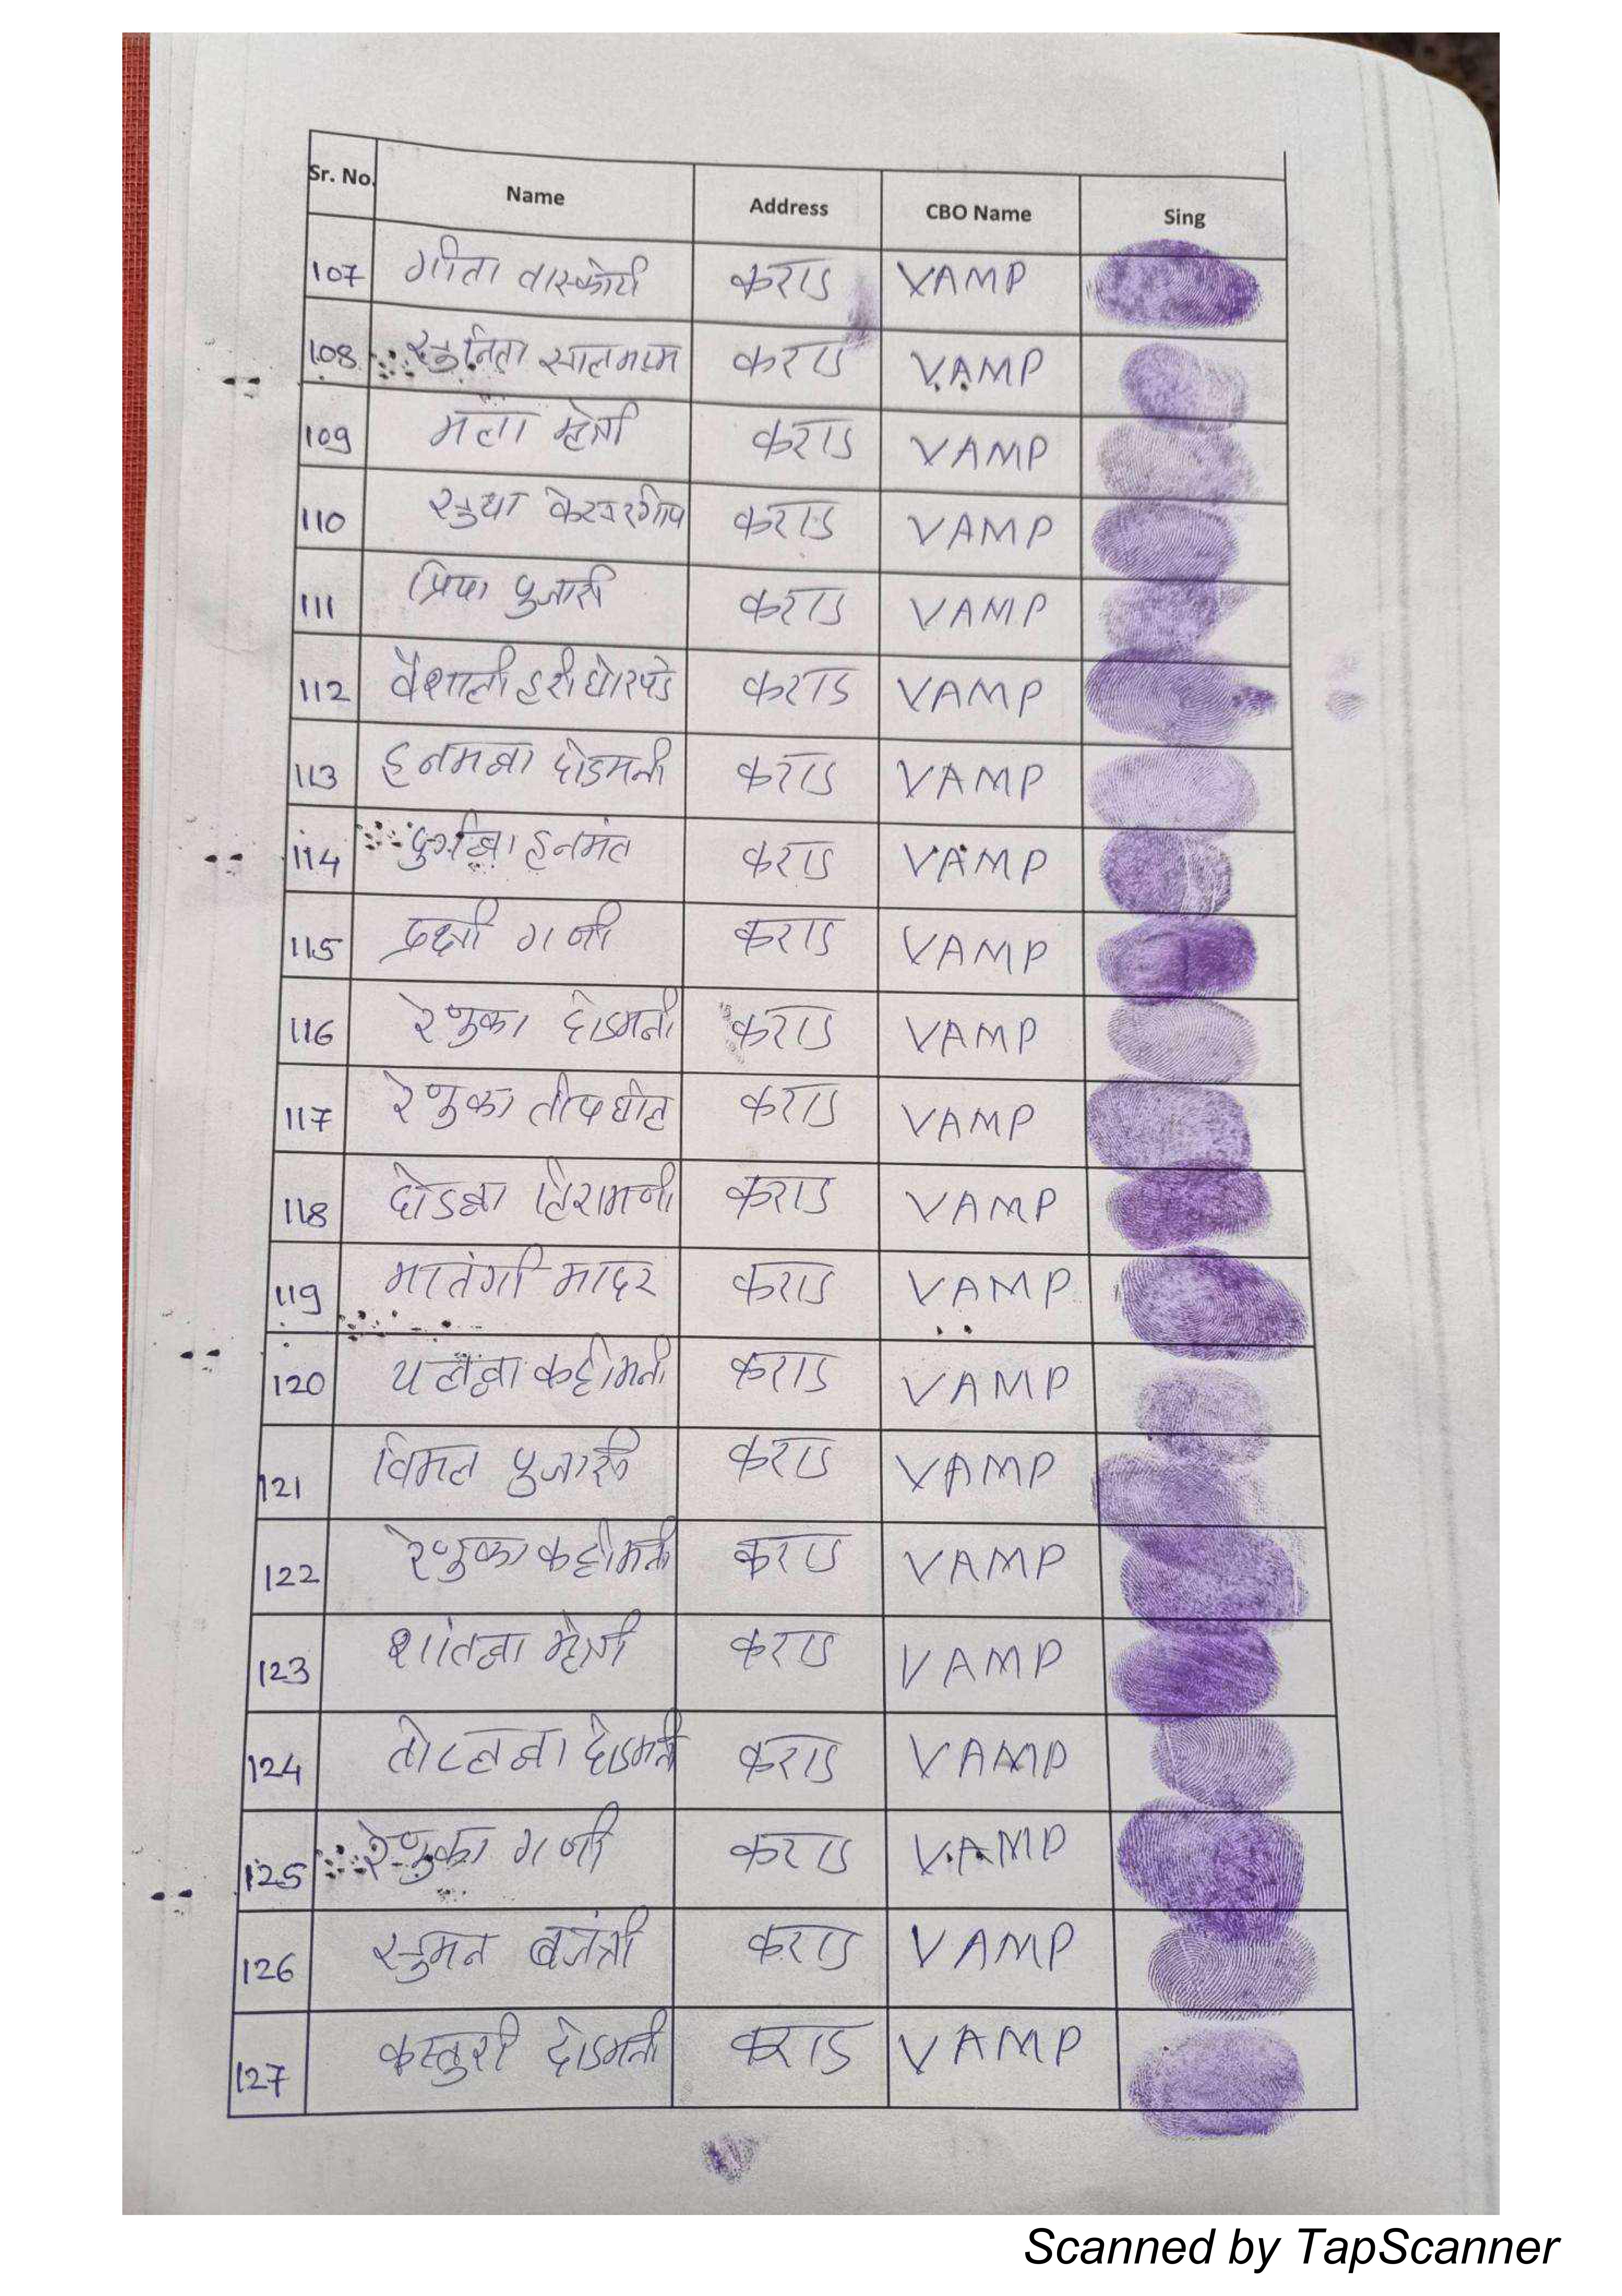 Sr. No. Name Address CBO Name Sing
107 गीता वास्कोटी कराड VAMP
108 सुनिता सालमाम कराड VAMP
109 मला म्हेत्री कराड VAMP
110 सुधा कराड VAMP
111 प्रिया पुजारी कराड VAMP
112 वैशाली हरी घोरपडे कराड VAMP
113 हनमव्वा दोडमनी कराड VAMP
114 दुर्गव्वा हनमंत कराड VAMP
115 द्रक्षी गाजी कराड VAMP
116 रेणुका दोडमनी कराड VAMP
117 रेणुका कराड VAMP
118 दोडव्वा हिरामणी कराड VAMP
119 मातंगी मादर कराड VAMP
120 यलव्वा कट्टीमनी कराड VAMP
121 विमल पुजारी कराड VAMP
122 रेणुका कट्टीमनी कराड VAMP
123 शांतव्वा म्हेत्री कराड VAMP
124 दोडमनी कराड VAMP
125 रेणुका गाजी कराड VAMP
126 सुमन बजंत्री कराड VAMP
127 कस्तुरी दोडमनी कराड VAMP
Scanned by TapScanner